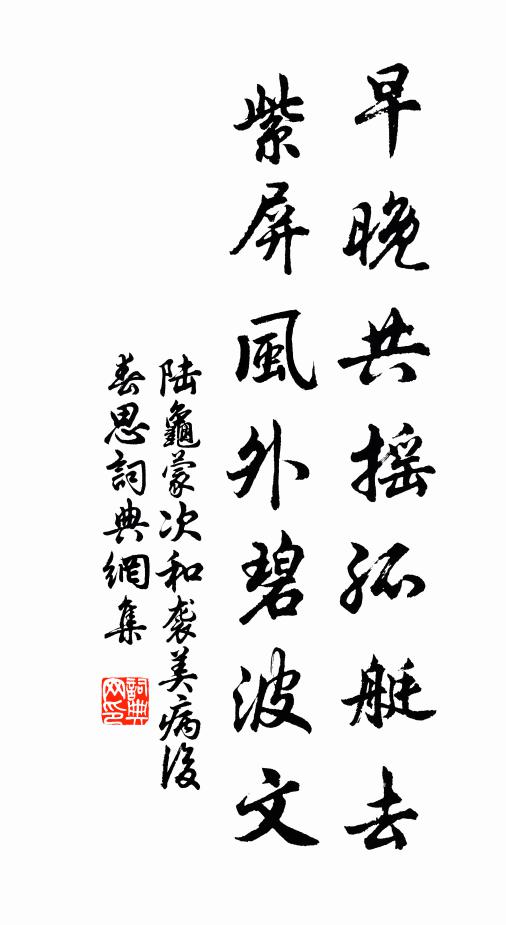 早晚共摇孤艇去
紫屏風外碧波文
陆龜蒙次和袭美病後
春思詞典網集
詞典
网印